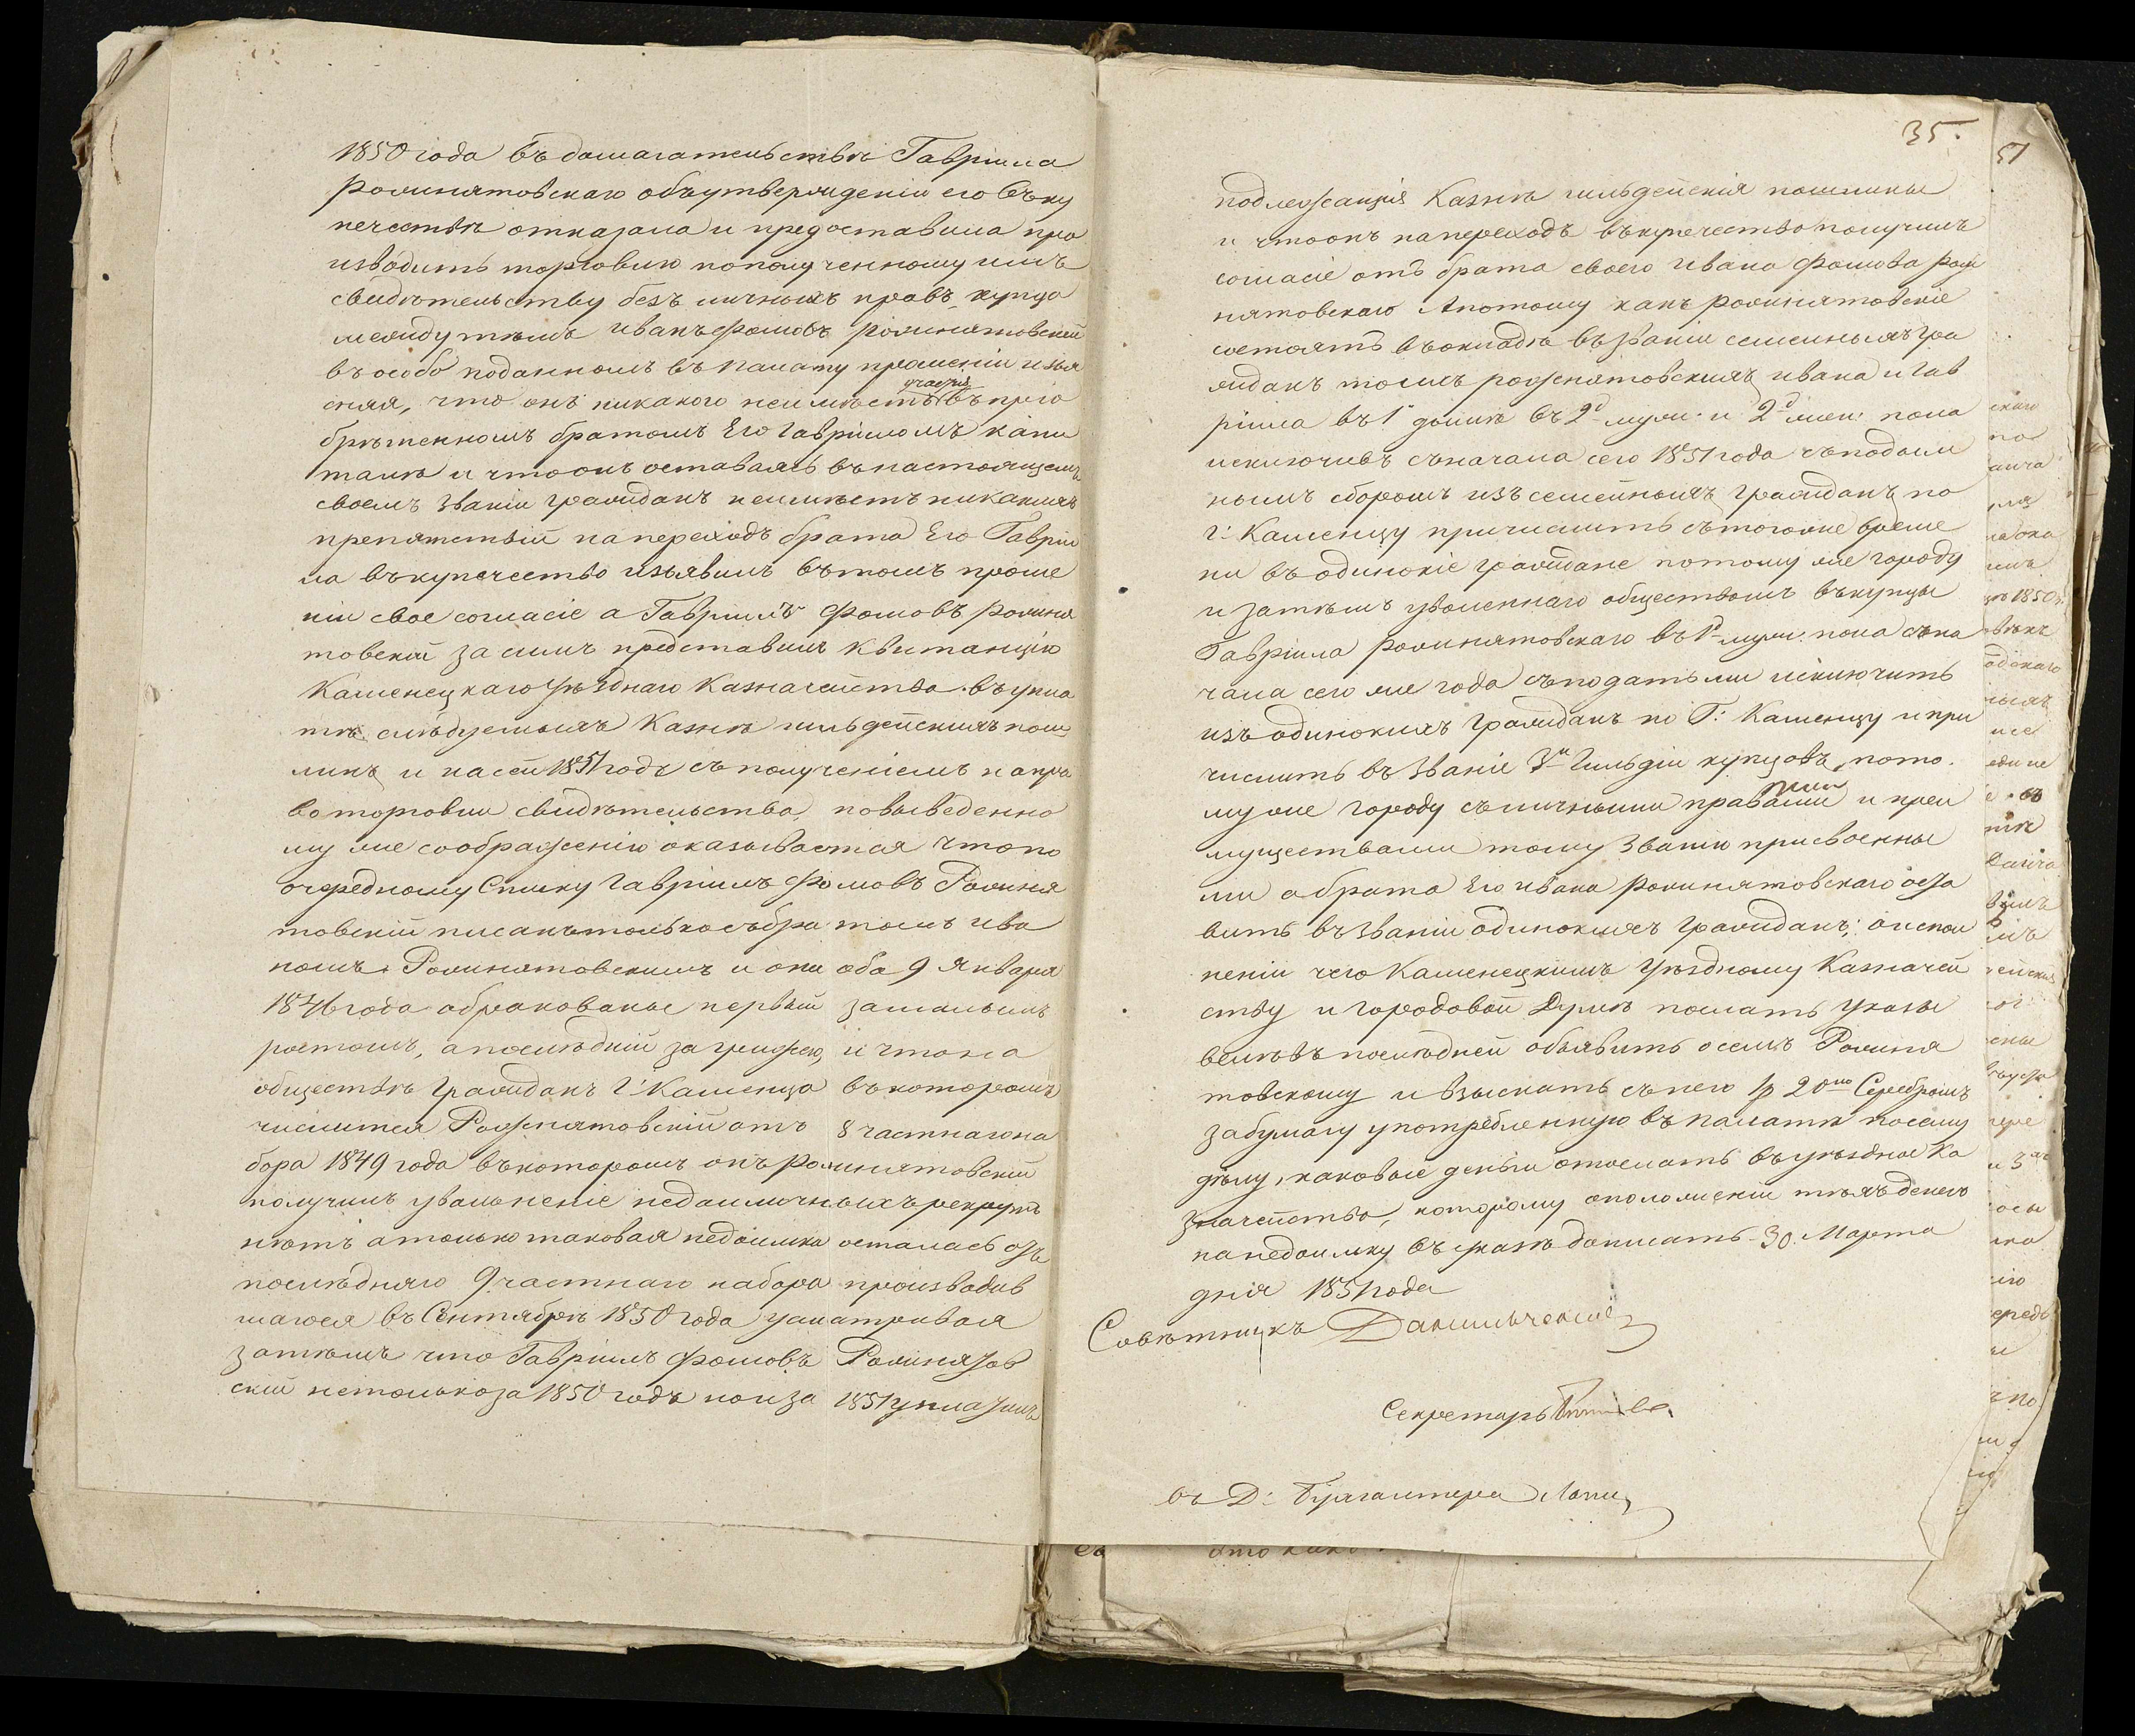 1850 года въ домагательствѣ Гавріила
Рожнятовскаго объ утвержденіи его въ ку
печествѣ отказала и предоставила про
изводить торговлю по полученному имъ
свидѣтельству безъ личныхъ правъ купца
между тѣмъ Иванъ Фомовъ Рожнятовскій
въ особо поданномъ въ Палату прошеніи изъя
сняя, что онъ никакого неимѣетъ участія въ прiо
брѣтенномъ братомъ Его Гавріиломъ капи
талѣ и что онъ оставаясь въ настоящемъ
своемъ званіи гражданъ неимѣетъ никакихъ
препятствій на переходъ брата Его Гаврiи
ла въ купечество изъявилъ въ томъ проше
ніи свое согласіе а Гавріилъ Фомовъ Рожня
товскій за симъ представилъ квитанцію
Каменецкаго Уѣзднаго Казначейства въ упла
тѣ слѣдуемыхъ Казнѣ гильдейскихъ пош
линъ и на сей 1851 годъ съ полученіемъ на пра
во торговли свидѣтельства, по выведенно
му же соображенію оказывается что по
очередному списку Гавріилъ Фомовъ Рожня
товскій писанъ только съ братомъ Ива
номъ Рожнятовскимъ и они оба 9 Января
1846 года обракованы первый за малымъ
ростомъ, а послѣдній за грыжею, и что на
обществѣ гражданъ г: Каменца въ которомъ
числится Рожнятовскій отъ 8 частнаго на
бора 1849 года въ которомъ онъ Рожнятовскій
получилъ увольненіе недоимочныхъ рекрутъ
нѣтъ а только таковая недоимка осталась отъ
послѣдняго 9 частнаго набора производив
шагося въ Сентябрѣ 1850 года усматривая
затѣмъ что Гавріилъ Фомовъ Рожнятов
скій нетолько за 1850 годъ но и за 1851 уплатилъ
35.
подлежащія Казнѣ гильдейскія пошлины
и что онъ на переходъ въ купечество получилъ
согласіе отъ брата своего Ивана Фомова Рож
нятовскаго А потому какъ Рожнятовскіе
состоятъ въ окладѣ въ званіи семейныхъ гра
жданъ то ихъ Рожнятовскихъ Ивана и Гав
ріила въ 1 домѣ въ 2 муж. и 2 жен: пола
исключивъ съ начала сего 1851 года съ подом
нымъ сборомъ изъ семейныхъ гражданъ по
г: Каменцу причислить съ того же време
ни въ одинокіе граждане по тому же городу
и затѣмъ уволеннаго обществомъ въ купцы
Гавріила Рожнятовскаго въ 1 муж. пола съ на
чала сего же года съ податьми исключить
изъ одинокихъ гражданъ по Г: Каменцу и при
числить въ званіе 3й Гильдіи купцовъ по то
му же городу съ личными правами и преи
муществами тому званію присвоенны
ми а брата Его Ивана Рожнятовскаго оста
вить въ званіи одинокихъ гражданъ; о испол
неніи чего Каменецкимъ Уѣздному Казначей
ству и городовой Думѣ послать указы
велѣвъ послѣдней объявить о семъ Рожня
товскому и взыскать съ него 1р 20 Серебромъ
за бумагу употребленную въ Палатѣ по сему
дѣлу, каковые деньги отослать въ уѣздное Ка
значейство, которому о положеніи тѣхъ денегъ
на недоимку въ указѣ дописать. 30. Марта
дня 1851 года
Совѣтникъ
Секретарь
въ Д: Бухгалтера